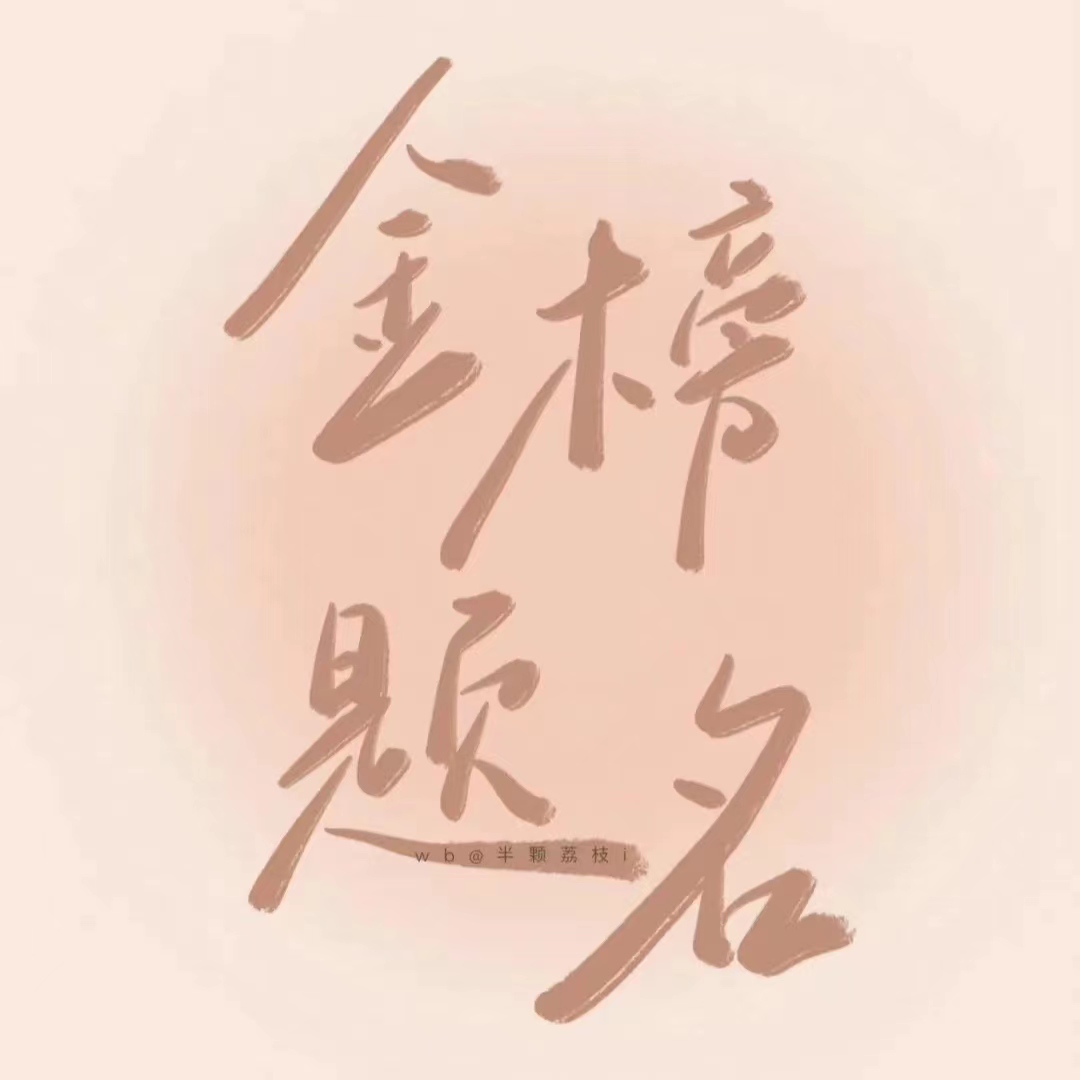 金榜
题名
wb@半颗荔枝i